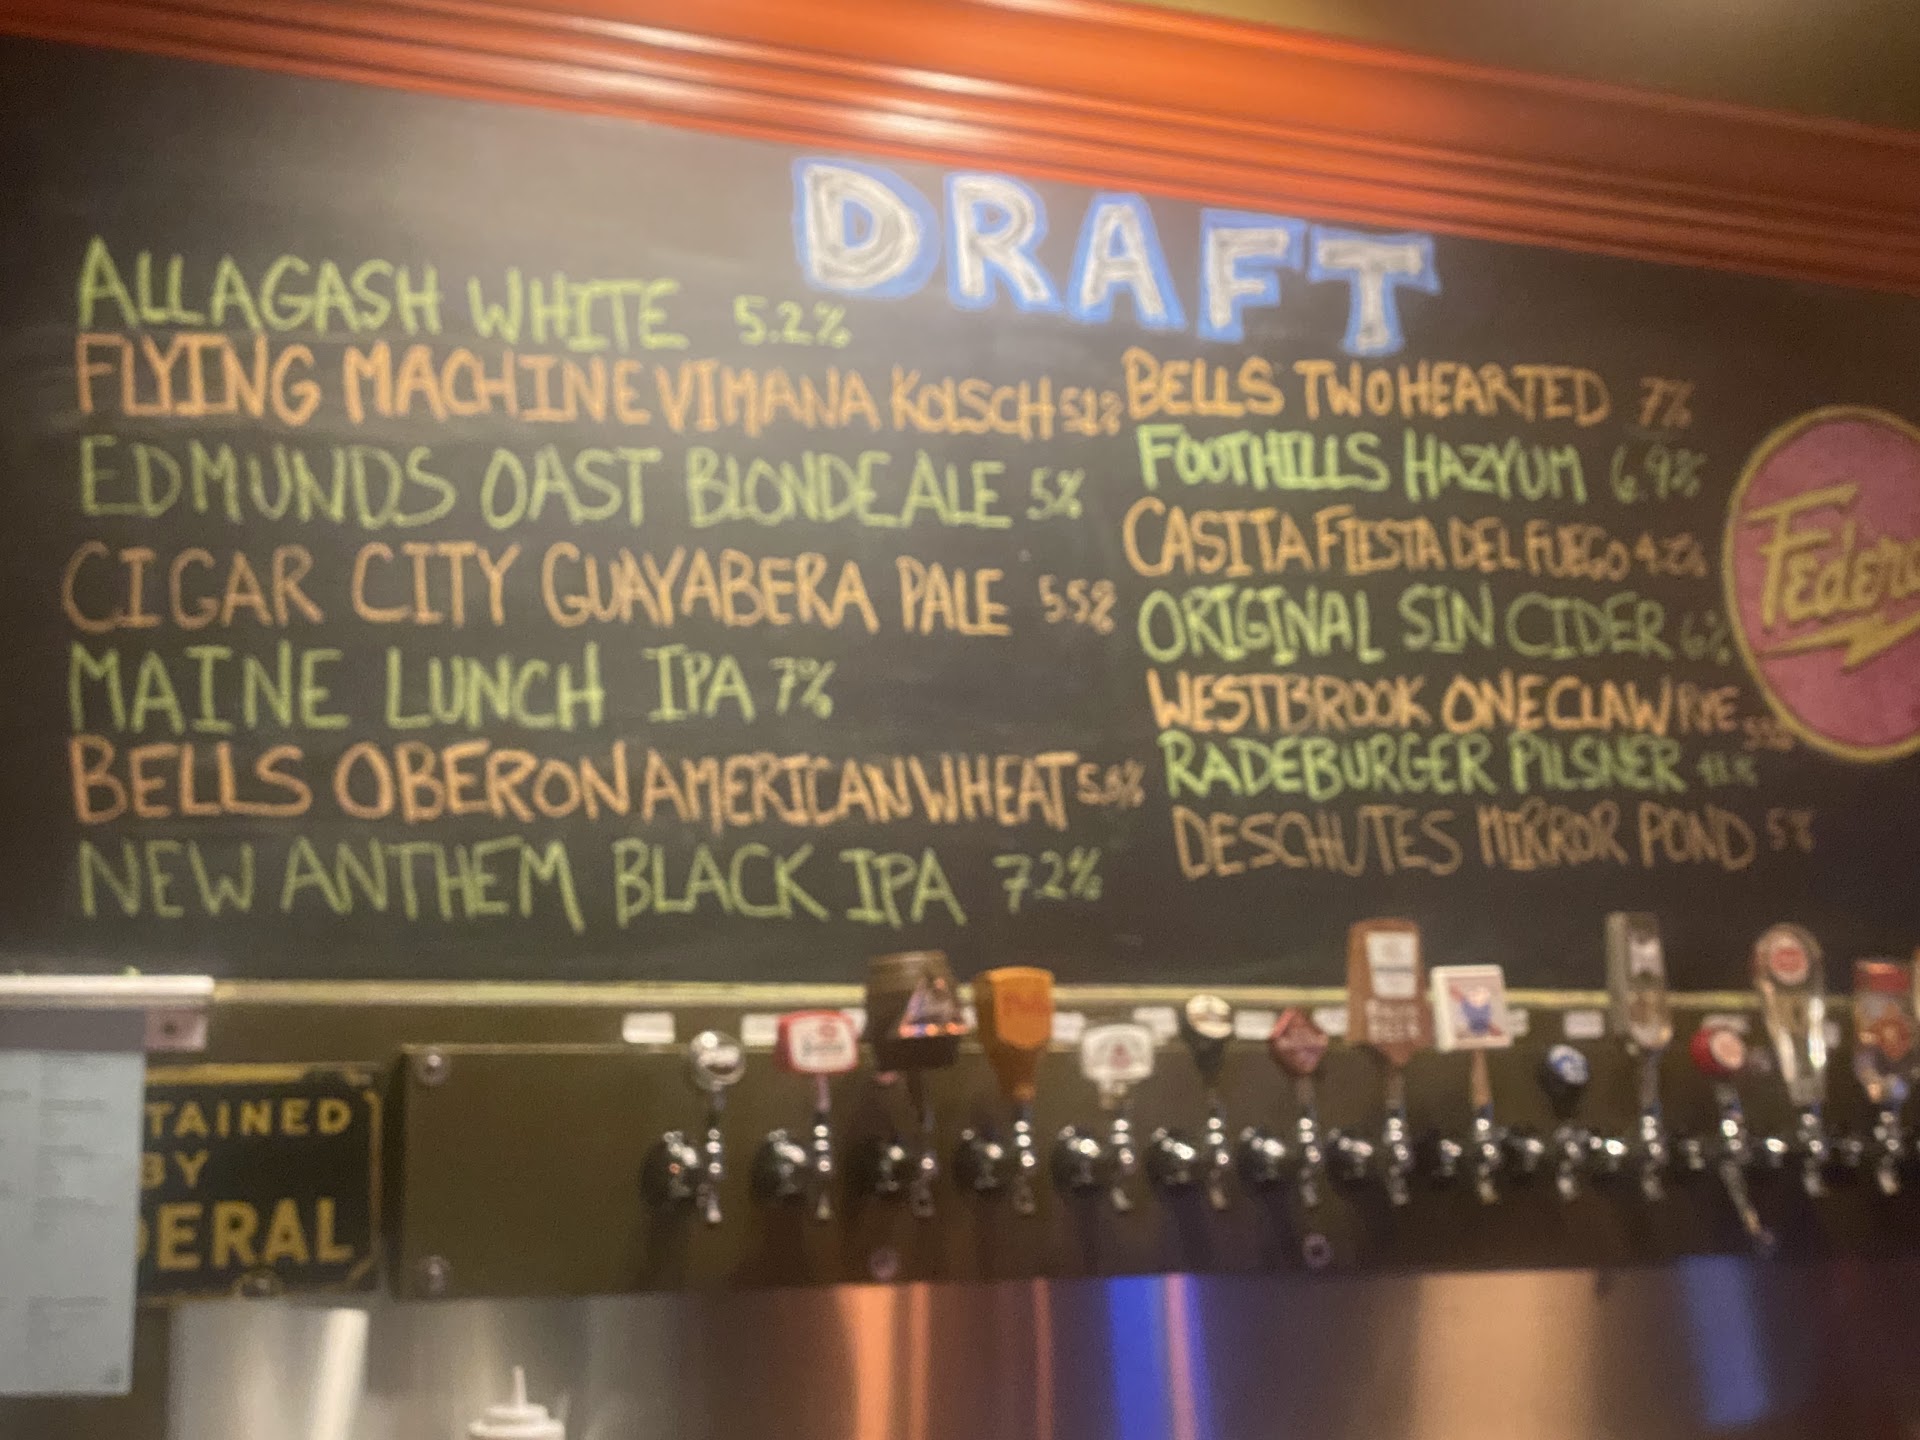 DRAFT
ALLAGASH WHITE 5.2%
FLYING MACHINE VIMANA KOLSCH 5.1%
EDMUNDS OAST BLONDE ALE 5%
CIGAR CITY GUAYABERA PALE 5.5%
MAINE LUNCH IPA 7%
BELLS OBERON AMERICAN WHEAT
NEW ANTHEM BLACK IPA 7.2%
BELLS TWO HEARTED 7%
FOOTHILLS HAZYUM 6.9%
CASITA FIESTA DEL FUEGO
ORIGINAL SIN CIDER 6%
WESTBROOK ONE CLAW RYE
RADEBURGER PILSNER
DESCHUTES MIRROR POND 5%
TAINED
BY
DERAL